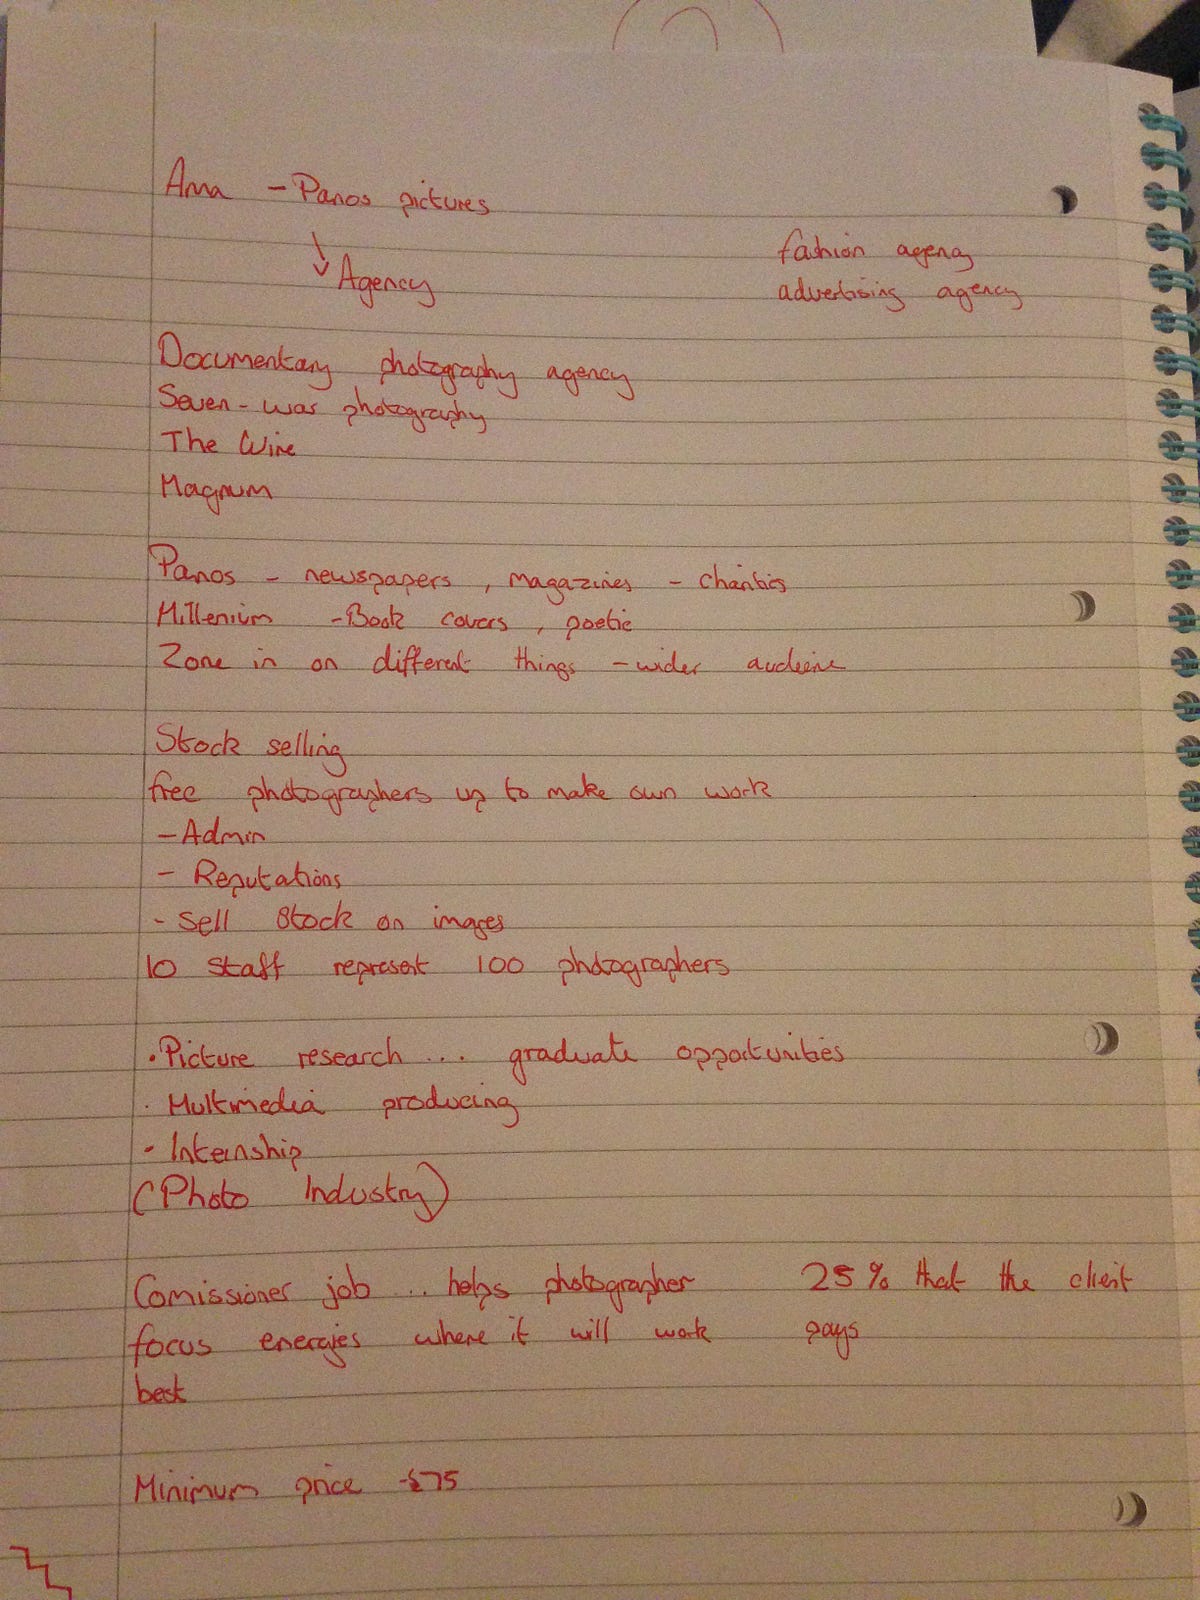 Anna - Panos pictures
↓ Agency
fashion agency
advertising agency
Documentary photography agency
Seven - was photography
The Wire
Magnum
Panos - newspapers, magazines - charities
Millenium - Book covers, poetic
Zone in on different things - wider audiene
Stock selling
free photographers up to make own work
- Admin
- Reputations
- Sell Stock on images
10 staff represent 100 photographers
• Picture research ... graduate opportunities
• Multimedia producing
• Internship
(Photo Industry)
Comissioner job ... helps photographer
focus energies where it will work
best
25% that the client
pays
Minimum price - £75